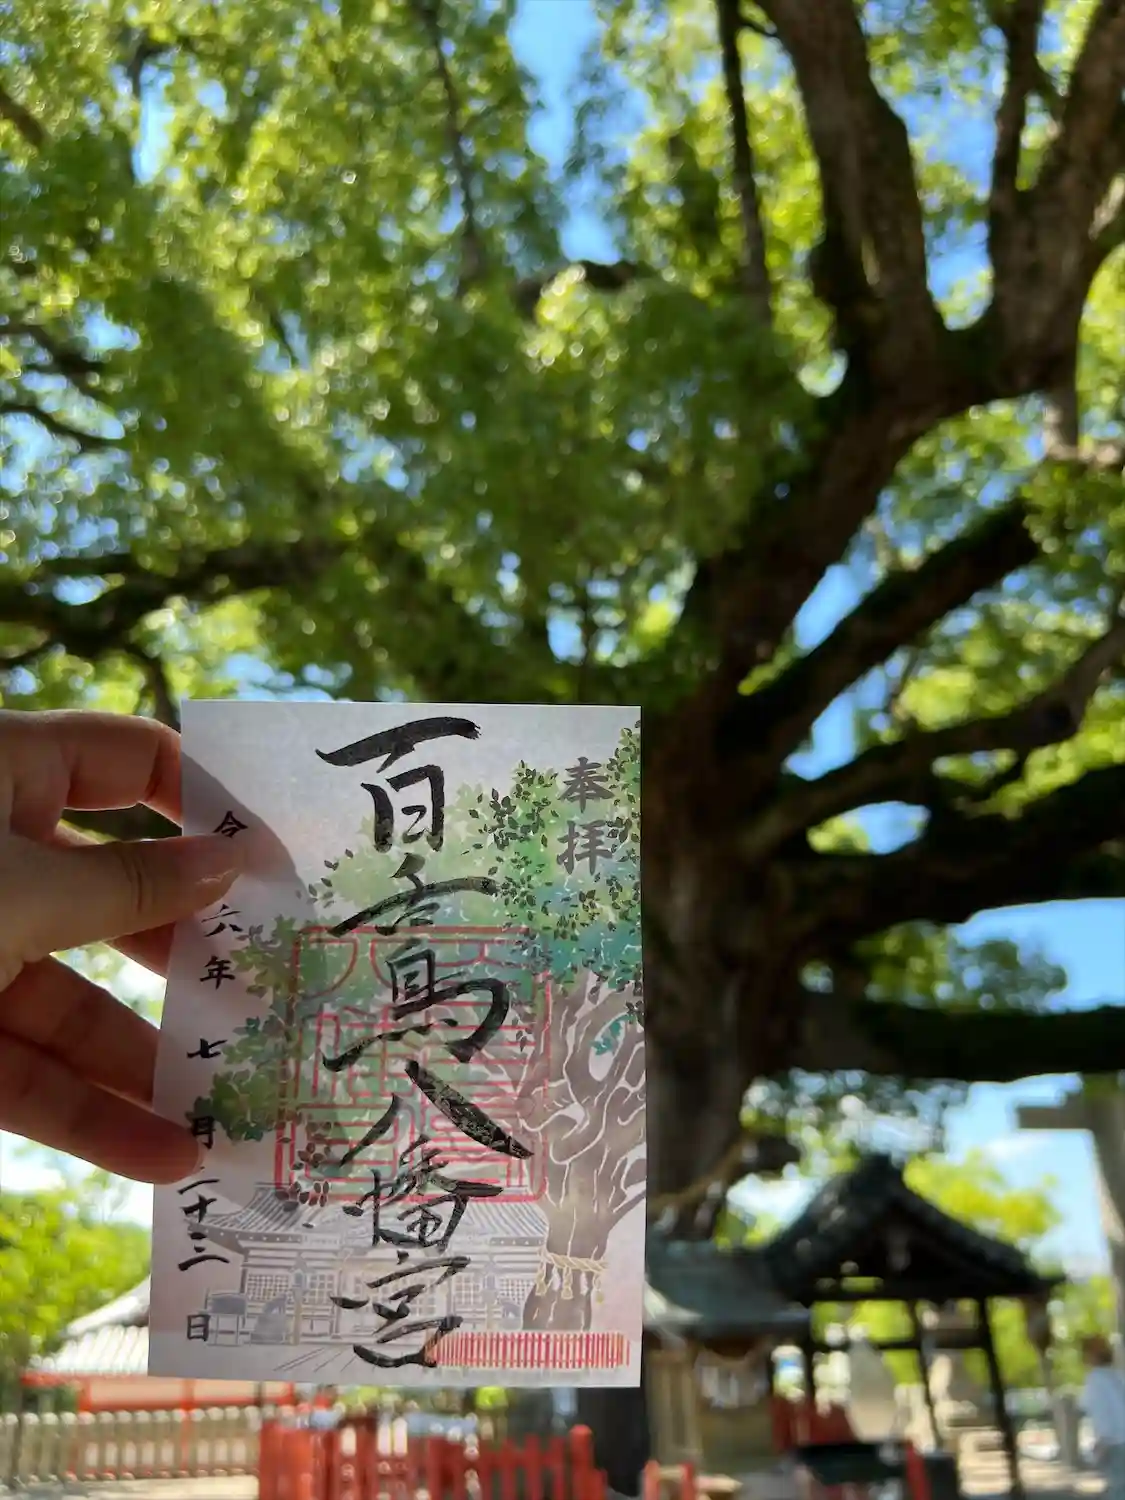 奉拝
百舌鳥八幡宮
令 六年 七月二十三日